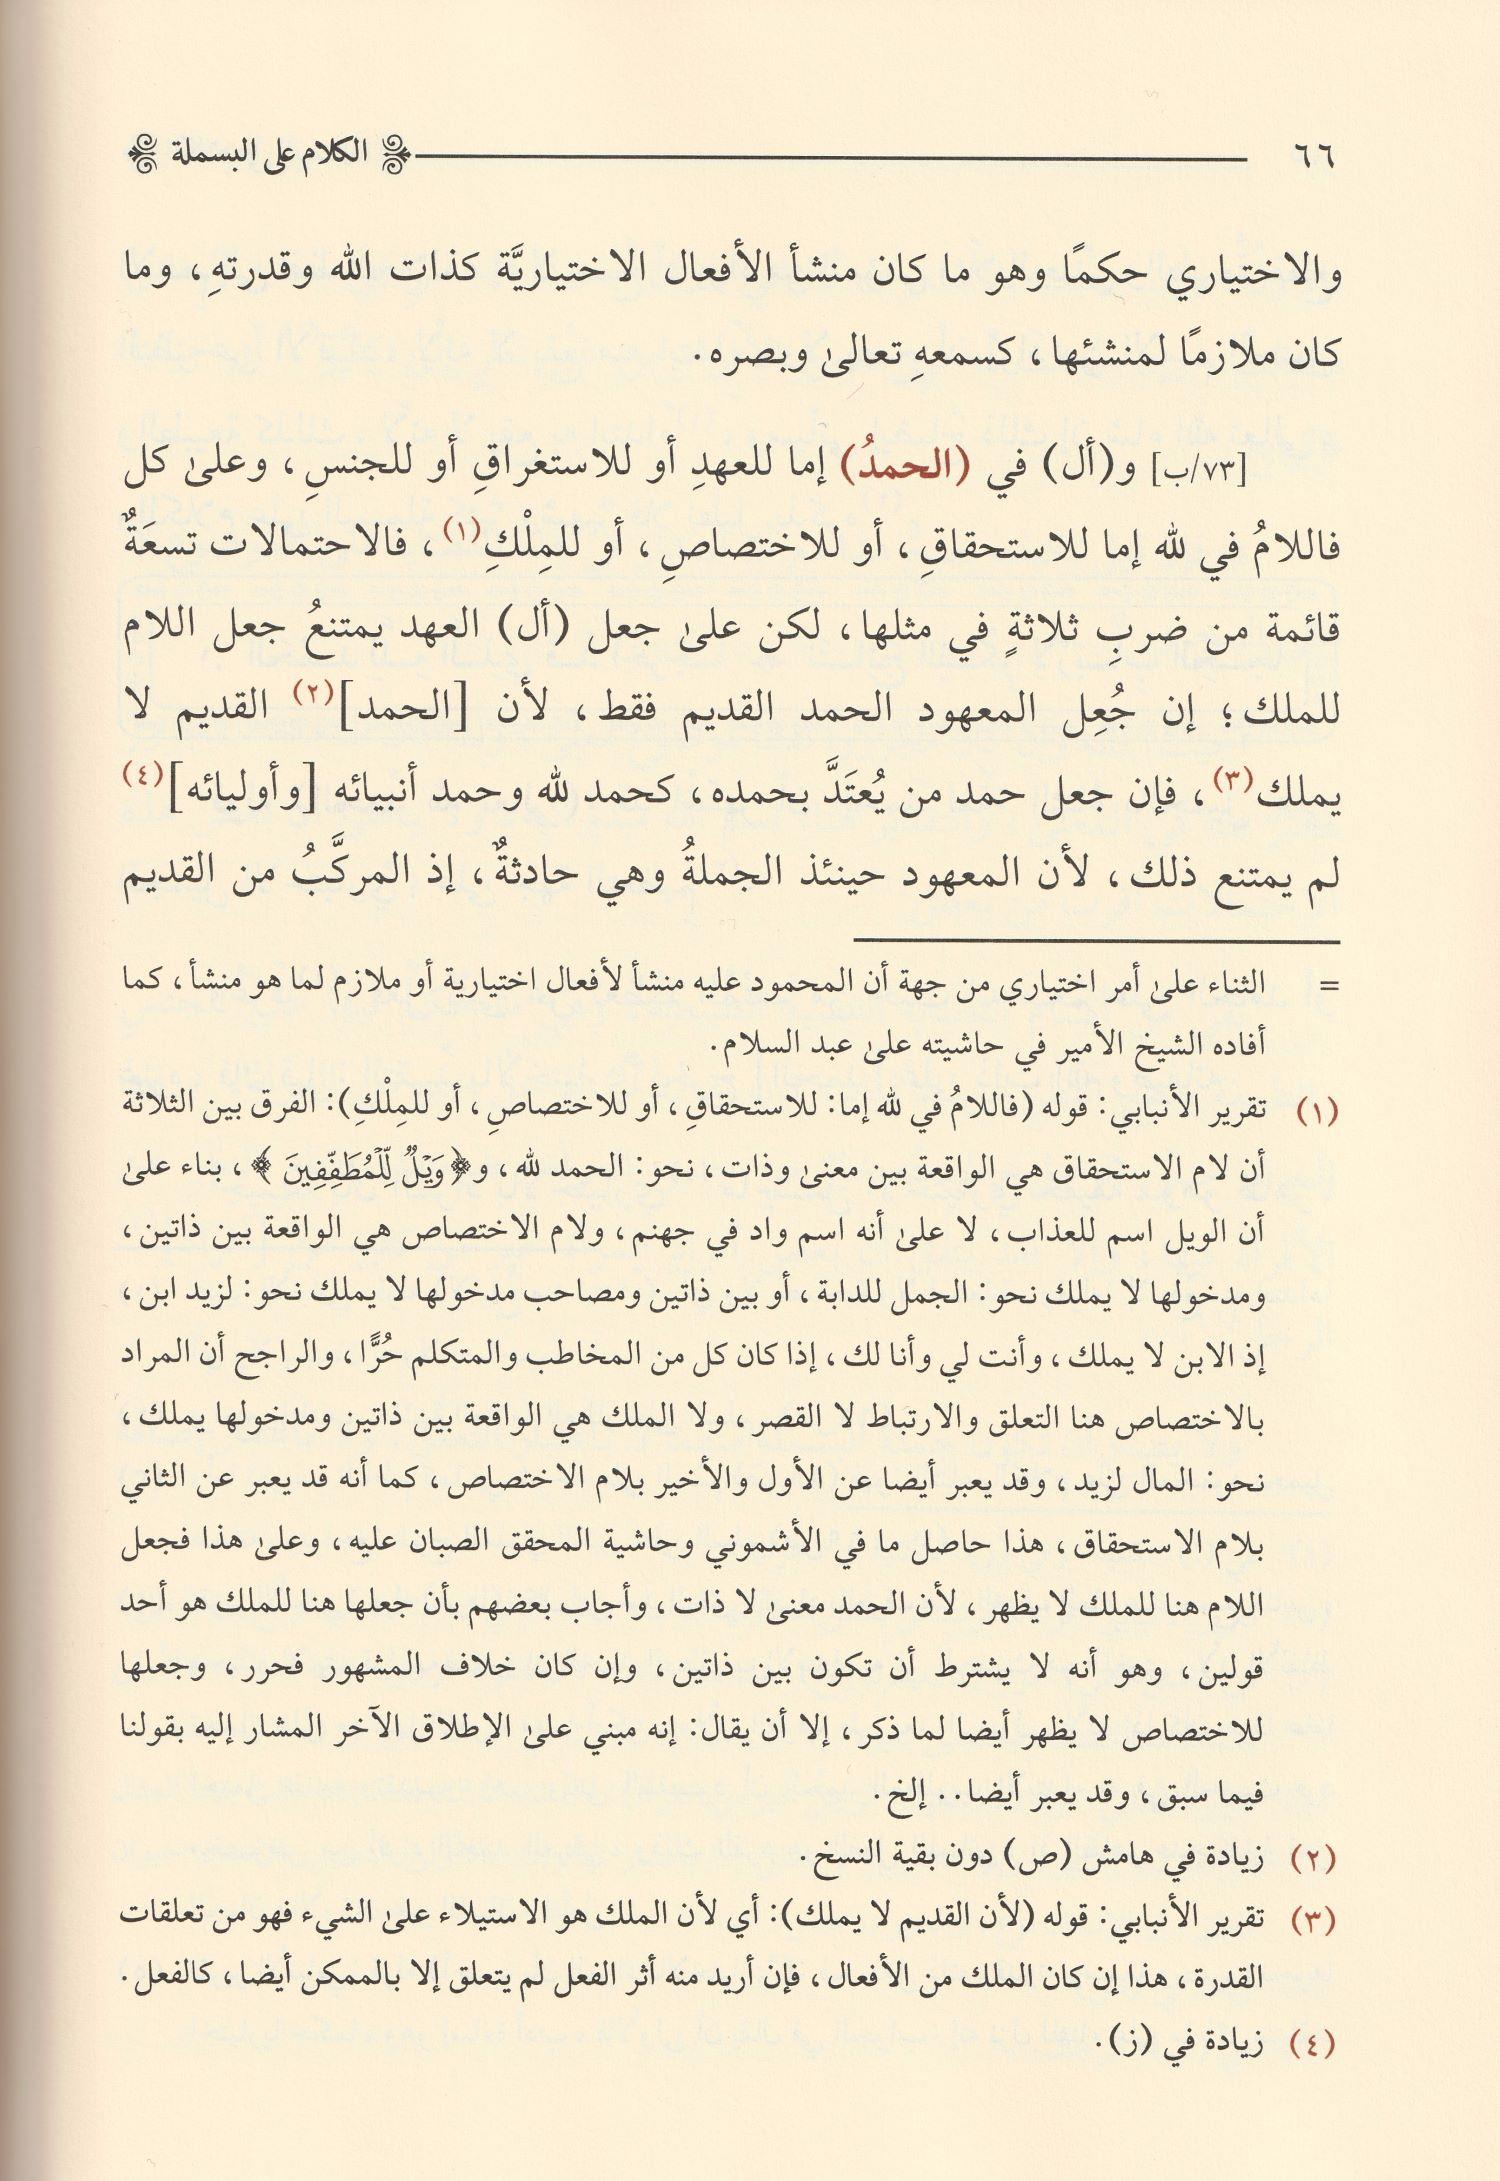 ٦٦ الكلام على البسملة
والاختياري حكمًا وهو ما كان منشأ الأفعال الاختياريَّة كذات الله وقدرتهِ، وما
كان ملازمًا لمنشئها، كسمعهِ تعالىٰ وبصره.
[٧٣/ب] و(أل) في (الحمدُ) إما للعهدِ أو للاستغراقِ أو للجنسِ، وعلىٰ كل
فاللامُ في لله إما للاستحقاقِ، أو للاختصاصِ، أو للمِلْكِ(١)، فالاحتمالات تسعَةٌ
قائمة من ضربِ ثلاثةٍ في مثلها، لكن علىٰ جعل (أل) العهد يمتنعُ جعل اللام
للملك؛ إن جُعِل المعهود الحمد القديم فقط، لأن [الحمد](٢) القديم لا
يملك(٣)، فإن جعل حمد من يُعتَدَّ بحمده، كحمد لله وحمد أنبيائه [وأوليائه](٤)
لم يمتنع ذلك، لأن المعهود حينئذ الجملةُ وهي حادثةٌ، إذ المركَّبُ من القديم
= الثناء علىٰ أمر اختياري من جهة أن المحمود عليه منشأ لأفعال اختيارية أو ملازم لما هو منشأ، كما
أفاده الشيخ الأمير في حاشيته علىٰ عبد السلام.
(١) تقرير الأنبابي: قوله (فاللامُ في لله إما: للاستحقاقِ، أو للاختصاصِ، أو للمِلْكِ): الفرق بين الثلاثة
أن لام الاستحقاق هي الواقعة بين معنىٰ وذات، نحو: الحمد لله، و﴿وَيْلٌ لِّلْمُطَفِّفِينَ﴾، بناء علىٰ
أن الويل اسم للعذاب، لا علىٰ أنه اسم واد في جهنم، ولام الاختصاص هي الواقعة بين ذاتين،
ومدخولها لا يملك نحو: الجمل للدابة، أو بين ذاتين ومصاحب مدخولها لا يملك نحو: لزيد ابن،
إذ الابن لا يملك، وأنت لي وأنا لك، إذا كان كل من المخاطب والمتكلم حُرًّا، والراجح أن المراد
بالاختصاص هنا التعلق والارتباط لا القصر، ولا الملك هي الواقعة بين ذاتين ومدخولها يملك،
نحو: المال لزيد، وقد يعبر أيضا عن الأول والأخير بلام الاختصاص، كما أنه قد يعبر عن الثاني
بلام الاستحقاق، هذا حاصل ما في الأشموني وحاشية المحقق الصبان عليه، وعلىٰ هذا فجعل
اللام هنا للملك لا يظهر، لأن الحمد معنىٰ لا ذات، وأجاب بعضهم بأن جعلها هنا للملك هو أحد
قولين، وهو أنه لا يشترط أن تكون بين ذاتين، وإن كان خلاف المشهور فحرر، وجعلها
للاختصاص لا يظهر أيضا لما ذكر، إلا أن يقال: إنه مبني علىٰ الإطلاق الآخر المشار إليه بقولنا
فيما سبق، وقد يعبر أيضا.. إلخ.
(٢) زيادة في هامش (ص) دون بقية النسخ.
(٣) تقرير الأنبابي: قوله (لأن القديم لا يملك): أي لأن الملك هو الاستيلاء علىٰ الشيء فهو من تعلقات
القدرة، هذا إن كان الملك من الأفعال، فإن أريد منه أثر الفعل لم يتعلق إلا بالممكن أيضا، كالفعل.
(٤) زيادة في (ز).